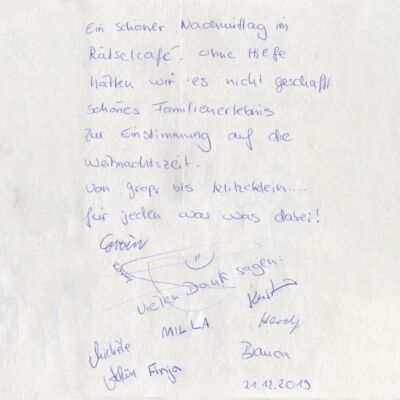 Ein schöner Nachmittag im
Rätselcafé. ohne Hilfe
hätten wir es nicht geschafft
schönes Familienerlebnis
zur Einstimmung auf die
Weihnachtszeit.
von groß bis klitzeklein....
für jeden war was dabei!
Vielen Dank sagen:
MILLA
Hardy
Michéle
Bianca
Finja
21.12.2019